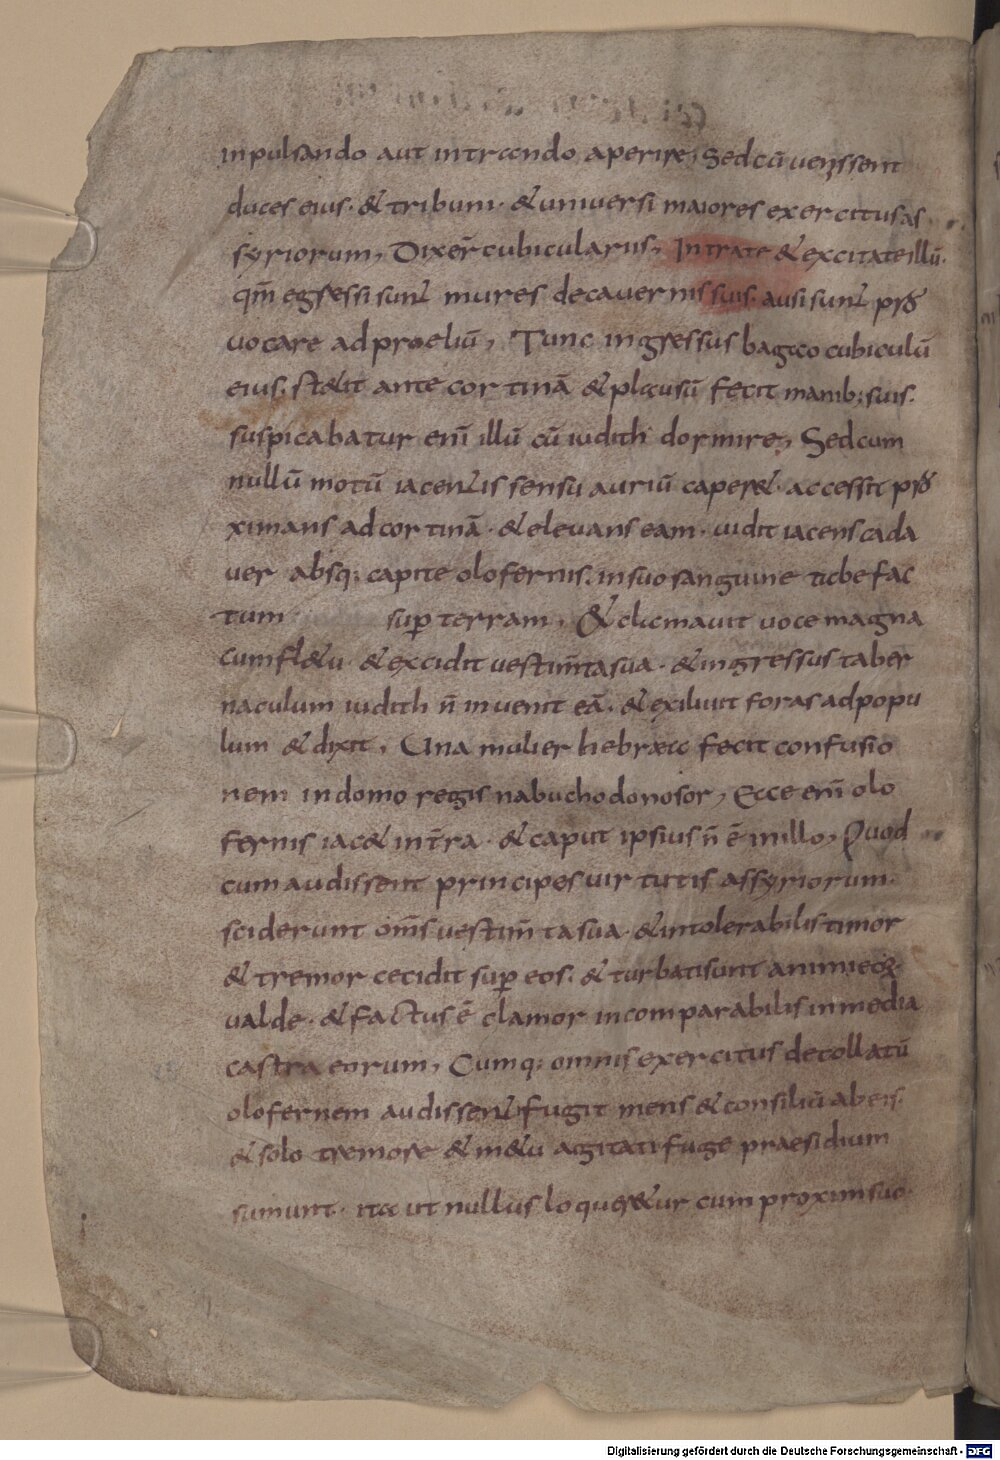 inpulsando aut intrando aperire, Sedcū venissent
duces eius· & tribuni· & universi maiores exercitus as
syriorum, Dixer̄ cubiculariis, Intrate & excitate illū·
qm̄ egressi sunt mures decavernis suis· ausi sunt pro
vocare ad proeliū, Tunc ingressus bagao cubiculū
eius· st&it ante cortinā & plausū fecit manib; suis·
suspicabatur eni͞ illū cū iudith dormire, Sedcum
nullū motū iacentis sensu auriū caper&· accessit pro
ximans ad cortinā· & elevans eam· vidit iacens cada
ver absq; capite olofernis· in suo sanguine tabefac
tum sup̱ terram, & clamavit voce magna
cum fl&u & excidit vestim̄ta sua· & ingressus taber
naculum iudith n̄ invenit eā· & exiluit foras ad popu
lum & dixit, Una mulier hebraea fecit confusio
nem in domo regis nabuchodonosor, Ecce eni͞ olo
fernis iac& in t̄ra· & caput ipsius n̄ ē in illo, Quod
cum audissent principes virtutis assyriorum·
sciderunt om̄s vestim̄ta sua· & intolerabilis timor
& tremor cecidit sup̱ eos· & turbati sunt animi eoꝝ·
valde· & factus ē clamor incomparabilis in media
castra eorum, Cumq; omnis exercitus decollatū
olofernem audissent fugit mens & consiliū ab eis·
& solo tremore & m&u agitati fuge praesidium
sumunt· ita ut nullus loquer&ur cum proximsuo
Digitalisierung gefördert durch die Deutsche Forschungsgemeinschaft - DFG